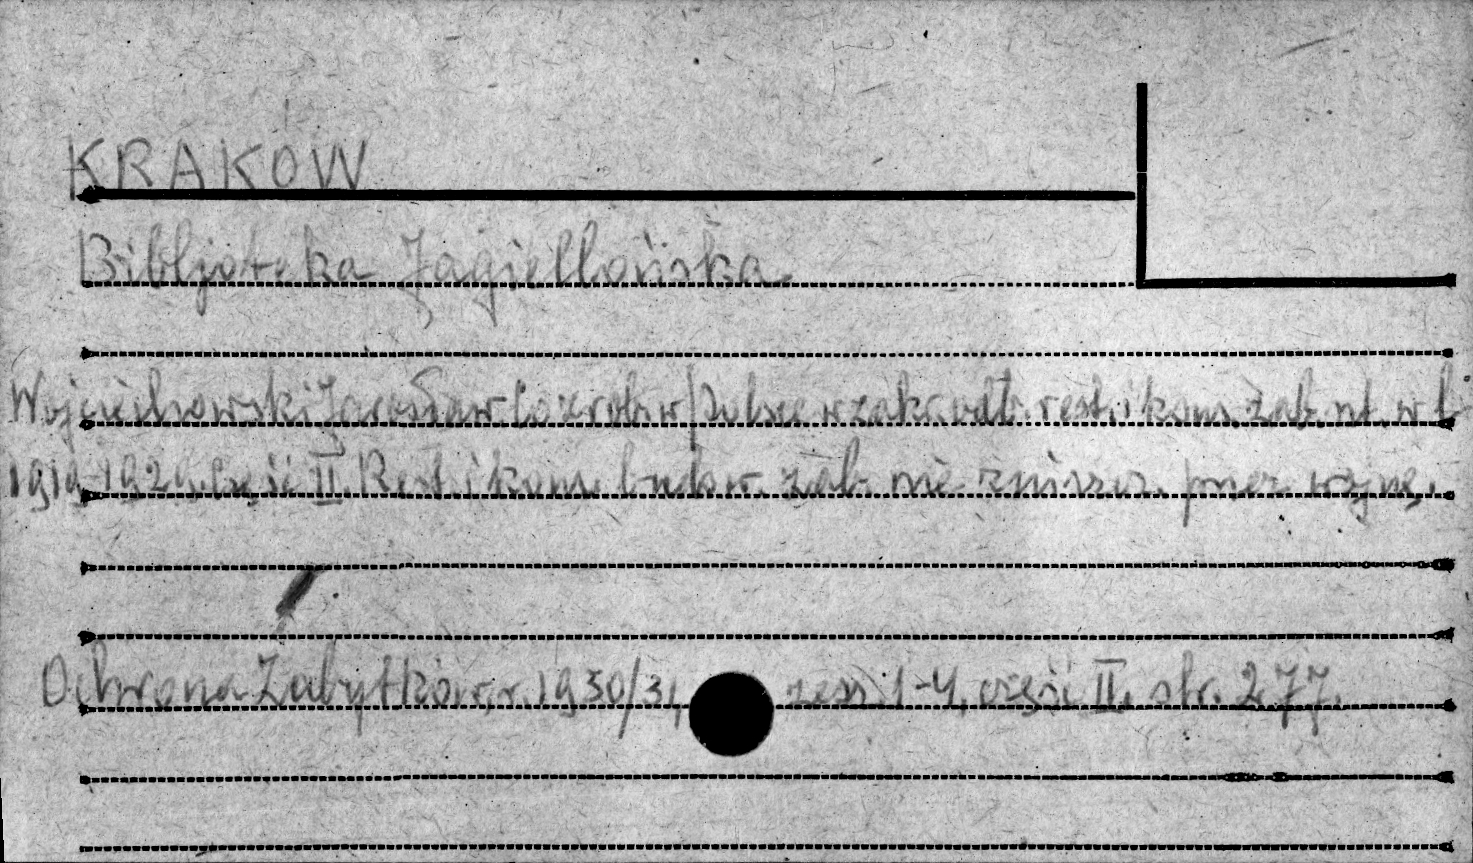 KRAKOW
Bibljoteka Jagiellońska.
Wojciechowski Jarosław. Co zrob. w Polsce w zakr. odb. rest. i kons. zab. nt. w l.
1919-1929. Część II. Rest. i kons. budow. zab. nie zniszcz. przez wojnę.
Ochrona Zabytków, r. 1930/31, zesz. 1-4, część II. str. 277.